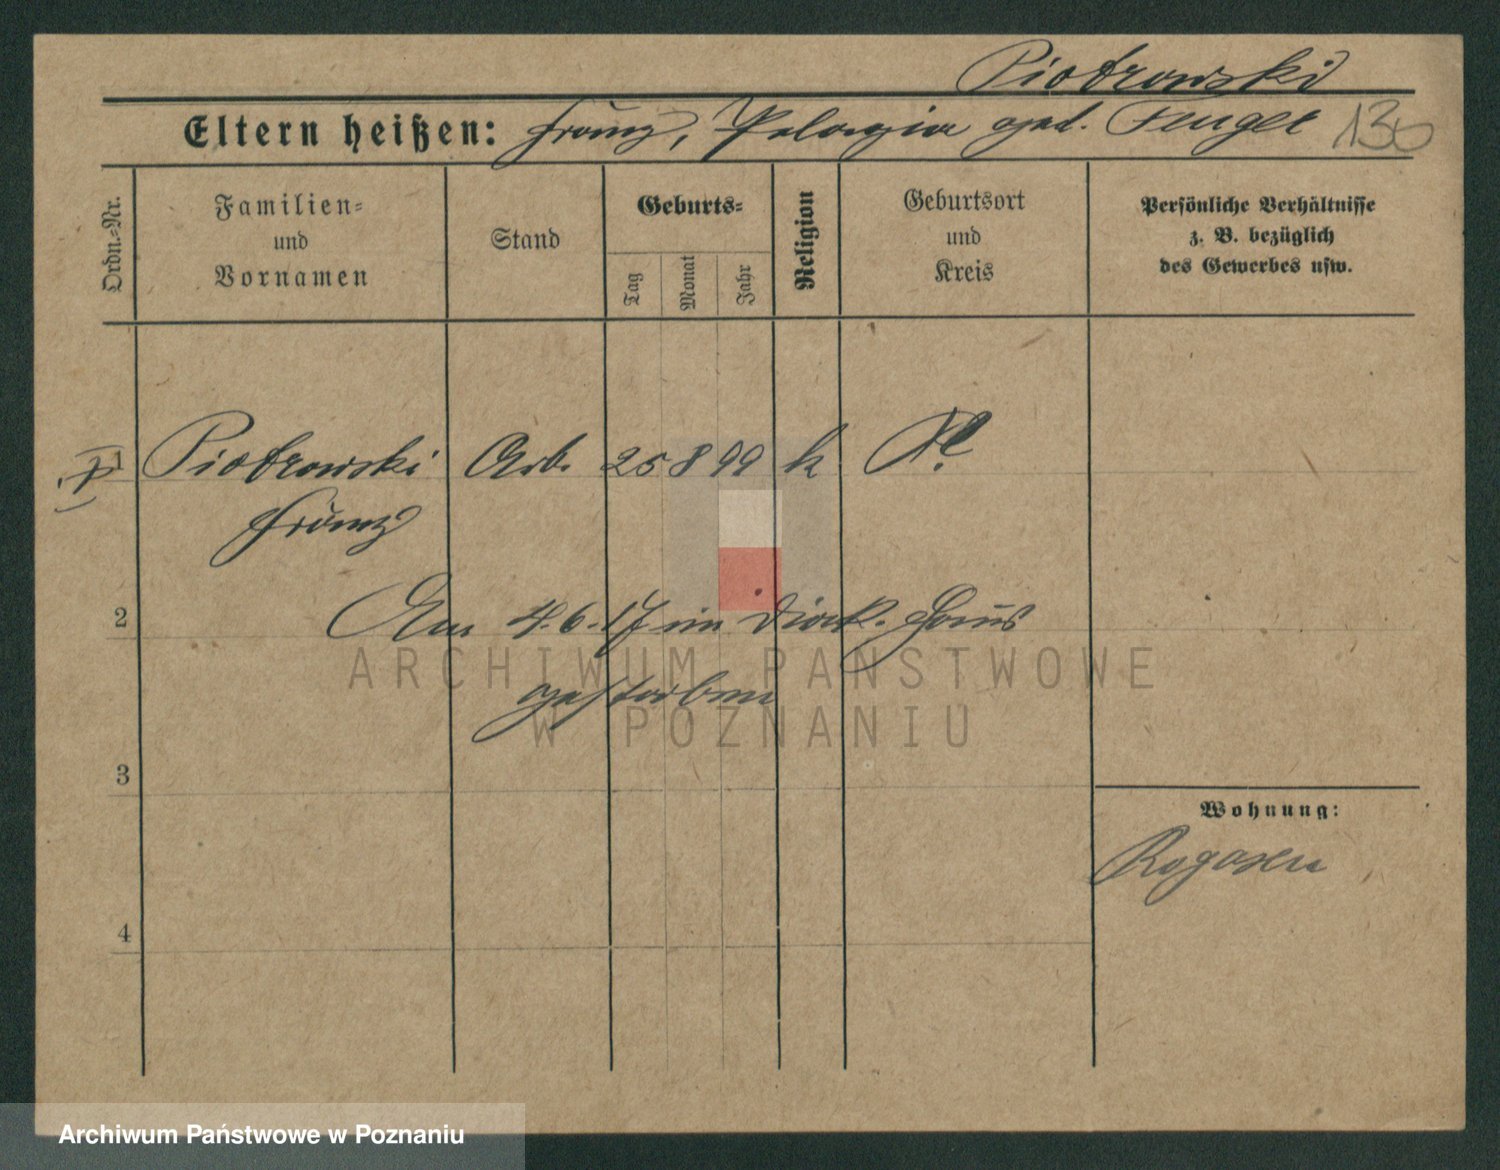 Piotrowski
Eltern heißen: Franz, Pelagia geb. Feuget 130
Ordn.-Nr.
Familien-
und
Vornamen
Stand
Geburts-
Tag
Monat
Jahr
Religion
Geburtsort
und
Kreis
Persönliche Verhältnisse
z. B. bezüglich
des Gewerbes usw.
1 Piotrowski Arb. 25 8 99 k
Franz
2 Am 4.6.17 im Diak. Haus
gestorben
3
4
Wohnung:
Rogasen
ARCHIWUM PAŃSTWOWE
W POZNANIU
Archiwum Państwowe w Poznaniu